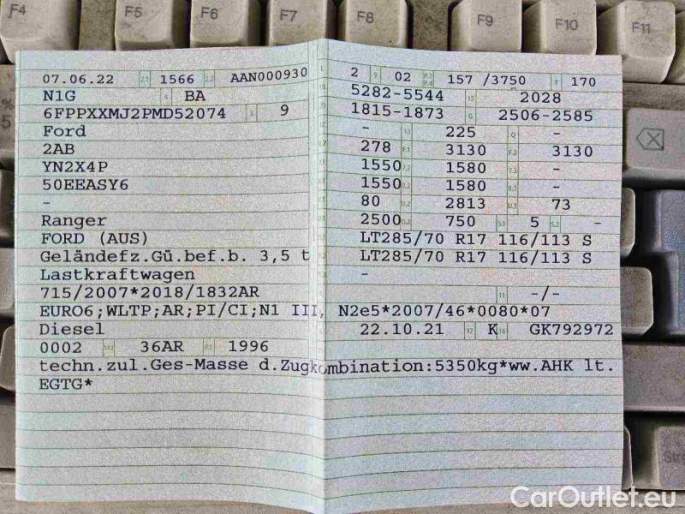 F4 F5 F6 F7 F8 F9 F10 F11
07.06.22 1566 AAN000930 2 02 157 /3750 170
N1G BA 5282-5544 2028
6FPPXXMJ2PMD52074 9 1815-1873 2506-2585
Ford - 225 -
2AB 278 3130 3130
YN2X4P 1550 1580 -
50EEASY6 1550 1580 -
- 80 2813 73
Ranger 2500 750 5 -
FORD (AUS) LT285/70 R17 116/113 S
Geländefz.Gü.bef.b. 3,5 t LT285/70 R17 116/113 S
Lastkraftwagen -
715/2007*2018/1832AR -/-
EURO6;WLTP;AR;PI/CI;N1 III, N2e5*2007/46*0080*07
Diesel 22.10.21 K GK792972
0002 36AR 1996
techn.zul.Ges-Masse d.Zugkombination:5350kg*ww.AHK lt.
EGTG*
CarOutlet.eu